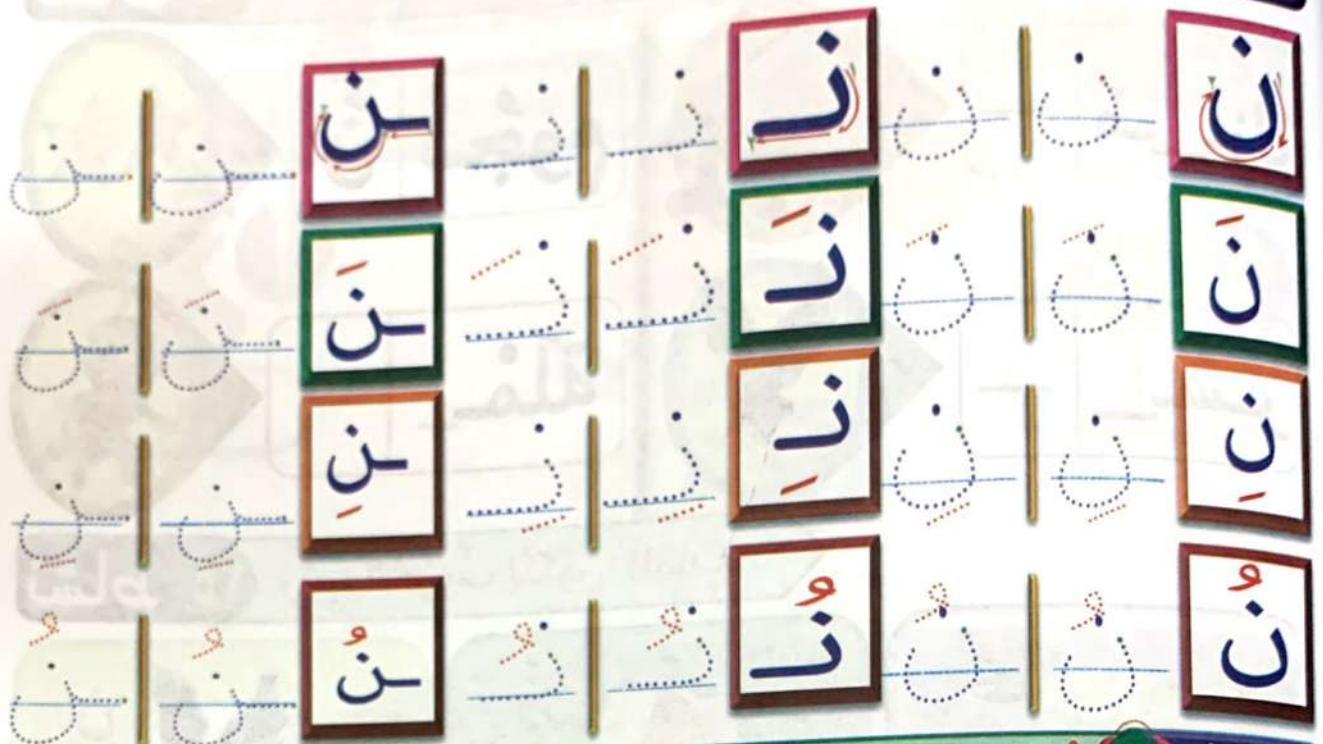 ن ن ن نـ نـ نـ ـن ـن ـن
نَ نَ نَ نَـ نَـ نَـ ـنَ ـنَ ـنَ
نِ نِ نِ نِـ نِـ نِـ ـنِ ـنِ ـنِ
نُ نُ نُ نُـ نُـ نُـ ـنُ ـنُ ـنُ